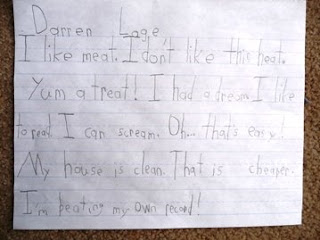 Darren Loge
I like meat. I don't like this heat.
Yum a treat! I had a dream. I like
to read I can scream. Oh... that's easy!
My house is clean. That is cheaper.
I'm beating my own record!